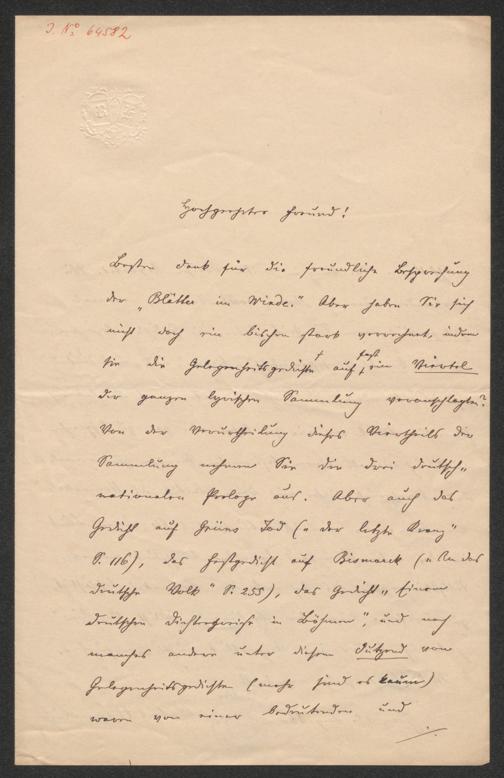 J. No 64582
Hochgeehrter Freund!
Besten Dank für die freundliche Besprechung
der „Blätter im Winde." Aber haben Sie sich
nicht doch ein bischen stark verrechnet, indem
Sie die Gelegenheitsgedichte auf fast ein Viertel
der ganzen lyrischen Sammlung veranschlagten?
Von der Verurtheilung dieses Viertheils der
Sammlung nehmen Sie die drei deutsch-
nationalen Prologe aus. Aber auch das
Gedicht auf Grüns Tod („der letzte Kranz"
S. 116), das Festgedicht auf Bismarck („An das
deutsche Volk" S. 255), das Gedicht „Einem
deutschen Dichtergreise in Böhmen", und noch
manches andere unter diesem Dutzend von
Gelegenheitsgedichten (mehr sind es kaum)
waren von einer bedeutenden und